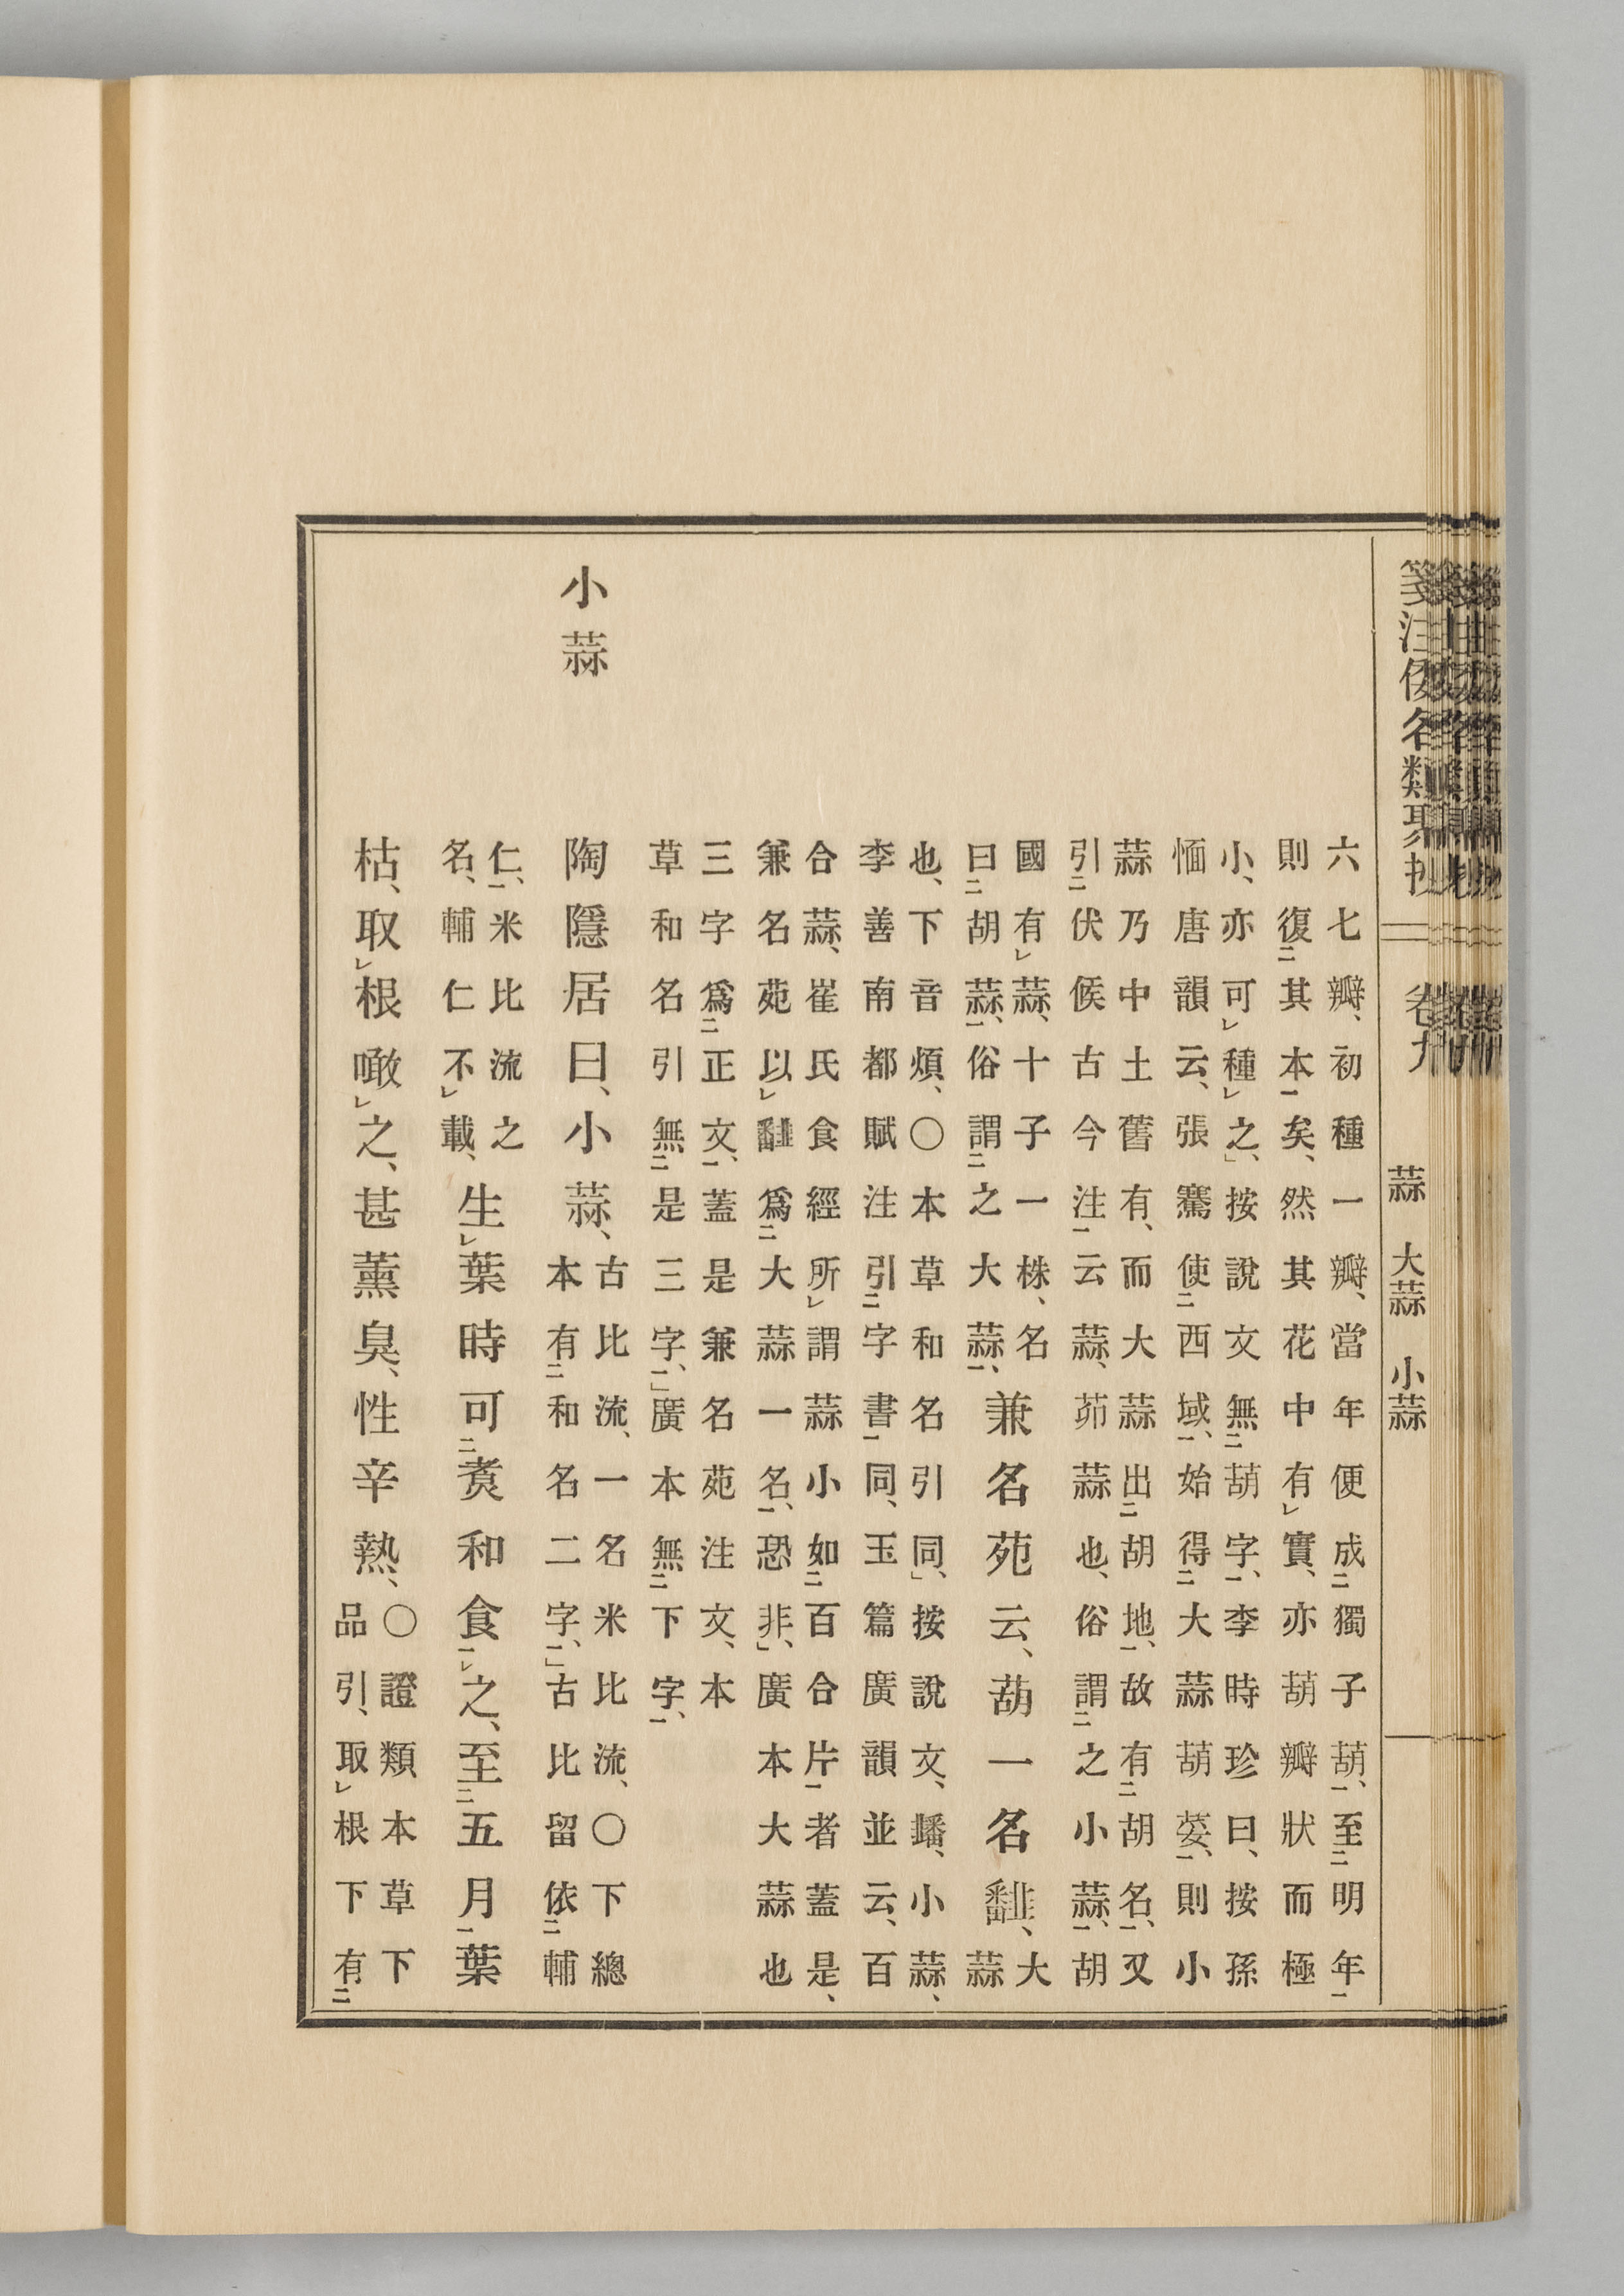 箋注倭名類聚抄 卷九 蒜 大蒜 小蒜
六七瓣、初種一瓣、當年便成獨子葫、至明年
則復其本矣、然其花中有實、亦葫瓣狀而極
小、亦可種之、」按說文無葫字、李時珍曰、按孫
愐唐韻云、張騫使西域、始得大蒜葫荽、則小
蒜乃中土舊有、而大蒜出胡地、故有胡名、又
引伏候古今注云蒜、茆蒜也、俗謂之小蒜、胡
國有蒜、十子一株、名
曰胡蒜、俗謂之大蒜、
兼名苑云、葫一名䪤、
大
蒜
也、下音煩、〇本草和名引同、」按說文、䪤、小蒜、
李善南都賦注引字書同、玉篇廣韻並云、百
合蒜、崔氏食經所謂蒜小如百合片者蓋是、
兼名苑以䪤爲大蒜一名、恐非、」廣本大蒜也
三字爲正文、蓋是兼名苑注文、本
草和名引無是三字、」廣本無下字、
小蒜
陶隱居曰、小蒜、
古比流、一名米比流、〇下總
本有和名二字、」古比留依輔
仁、米比流之
名、輔仁不載、
生葉時可煑和食之、至五月葉
枯、取根噉之、甚薰臭、性辛熱、
〇證類本草下
品引、取根下有